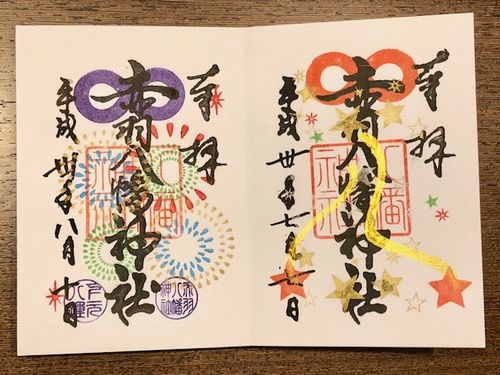 奉拝
赤羽八幡神社
八幡
神社
平成卅年七月七日
奉拝
赤羽八幡神社
八幡
神社
平成卅年八月十日
赤羽
八幡
神社